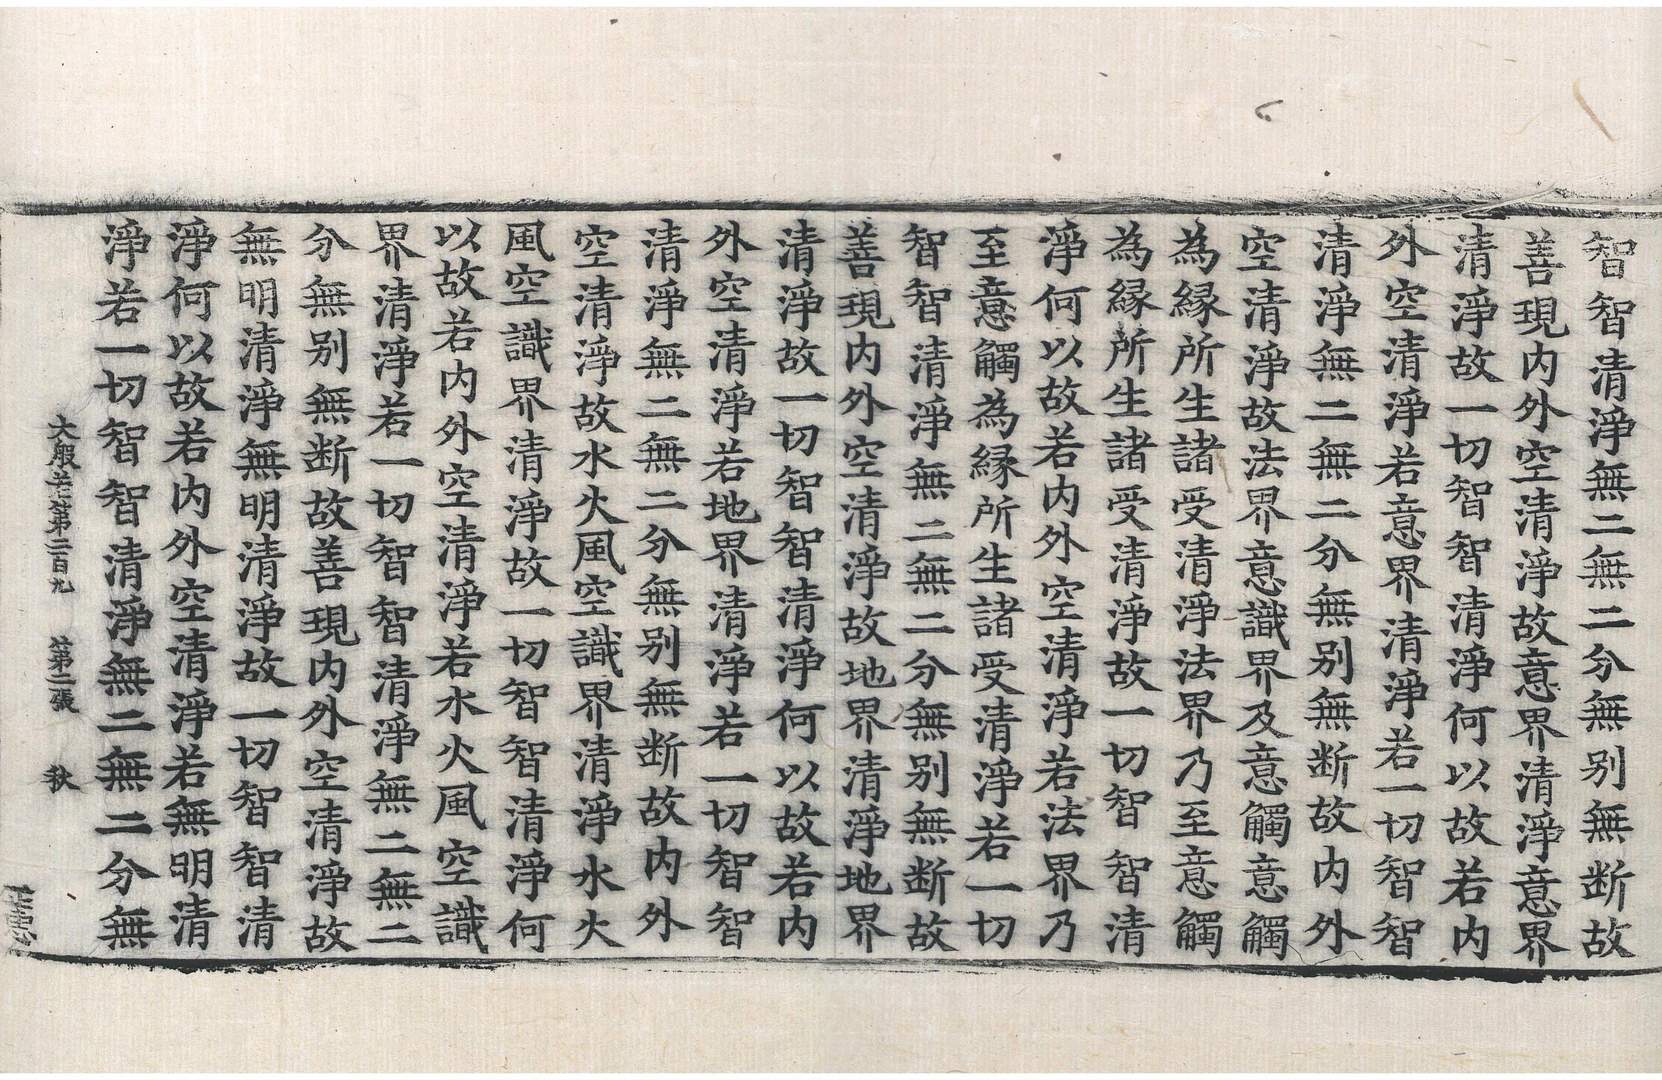 智智清淨無二無二分無别無断故
善現内外空清淨故意界清淨意界
清淨故一切智智清淨何以故若内
外空清淨若意界清淨若一切智智
清淨無二無二分無别無断故内外
空清淨故法界意識界及意觸意觸
為縁所生諸受清淨法界乃至意觸
為縁所生諸受清淨故一切智智清
淨何以故若内外空清淨若法界乃
至意觸為縁所生諸受清淨若一切
智智清淨無二無二分無别無断故
善現内外空清淨故地界清淨地界
清淨故一切智智清淨何以故若内
外空清淨若地界清淨若一切智智
清淨無二無二分無别無断故内外
空清淨故水火風空識界清淨水火
風空識界清淨故一切智智清淨何
以故若内外空清淨若水火風空識
界清淨若一切智智清淨無二無二
分無别無断故善現内外空清淨故
無明清淨無明清淨故一切智智清
淨何以故若内外空清淨若無明清
淨若一切智智清淨無二無二分無
大般若第二百九 第二張 秋